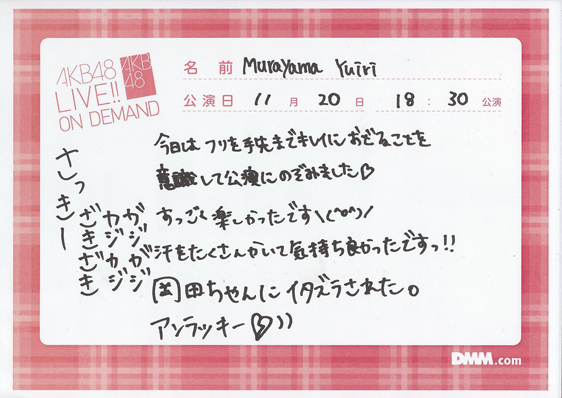 AKB48
LIVE!!
ON DEMAND
AKB
48
名前 Murayama Yuiri
公演日 11月20日 18:30公演
今日はフリを手先までキレイにおどることを
意識して公演にのぞみました♡
すっごく楽しかったです\(^o^)/
汗をたくさんかいて気持ち良かったですっ!!
岡田ちゃんにイタズラされた。
アンラッキー♡))
さっきー
ざきざき
カジカジ
ガジガジ
DMM.com